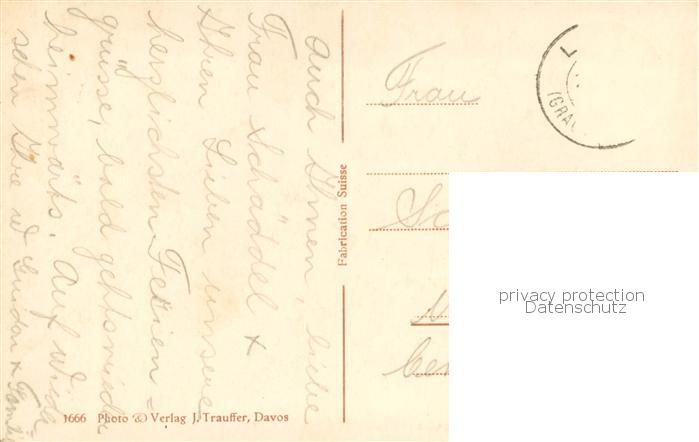 Auch Ihnen, liebe
Frau Schäddel +
Ihren Lieben unsere
herzlichsten Ferien-
grüsse, bald gehts wieder
heimwärts. Auf Wieder
sehen Ihre
Fabrication Suisse
1666 Photo & Verlag J. Trauffer, Davos
Frau
(GRA
privacy protection
Datenschutz